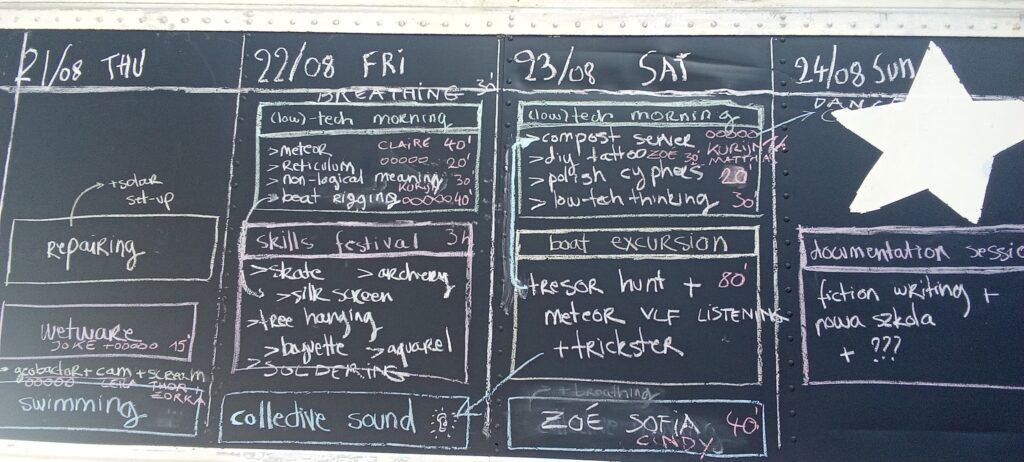 21/08 THU
+solar
set-up
repairing
wetware
JOKE + OOOOO 15'
geobactor + cam + scream
OOOOO LEILA THOR
ZORKA
swimming
22/08 FRI
BREATHING 30'
(low)-tech morning
>meteor CLAIRE 40'
>Reticulum OOOOO 20'
>non-logical meaning 30
KURIJN
>boat rigging OOOOO 40'
skills festival 3h
>skate >archery
>silk screen
>tree hanging
>baguette >aquarel
>SOLDERING
collective sound
23/08 SAT
(low)tech morning
>compost server OOOOO
KURIJN
>diy tattoo ZOE 30' MATTHIA
>polish cyphers 20'
>low-tech thinking 30'
boat excursion
tresor hunt + 80'
meteor VLF LISTENING
+trickster
+breathing
ZOÉ SOFIA 40'
CINDY
24/08 SUN
documentation sessio
fiction writing +
nowa szkola
+ ???